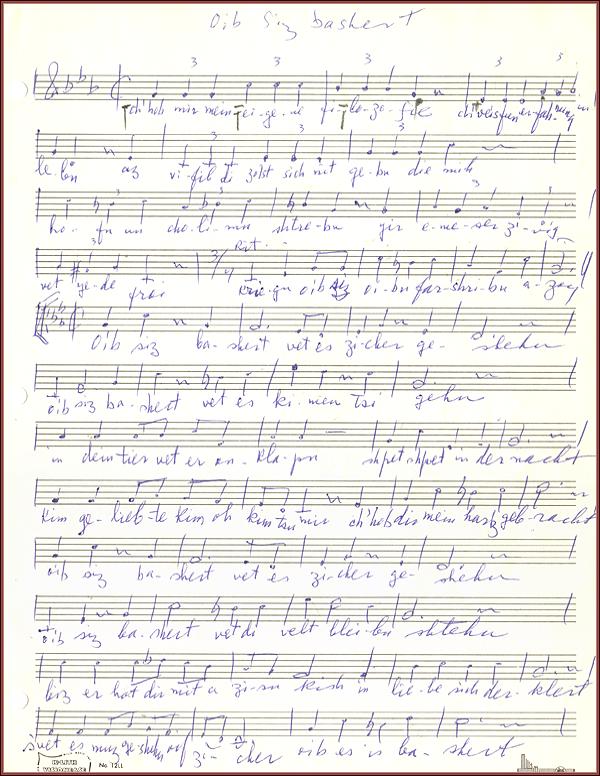 Oib Siz bashert
3 3 3 3 3
ch'hob mir mein ei-ge-ne fi-lo-zo-fie ch'veis fun er-fah-rung in
le-bn az vi-fil di zolst sich nit ge-bn die mih
3 3 3
ho-fn un cho-li-min shtre-bn yir e-ne-ser zi-vig
3 Rit.
vet ye-de froi krie-gn oib siz oi-bn far-shri-bn a-zoy
Oib siz ba-shert vet es zi-cher ge-shehn
oib siz ba-shert vet es ki-men tsi gehn
in dein tier vet er on-kla-pn shpet shpet in der nacht
kim ge-lieb-te kim oh kim tsu mir ch'hob dis mein harz geb-racht
oib siz ba-shert vet es zi-cher ge-shehn
oib siz ba-shert vet di velt blei-bn shtehn
biz er hot dir mit a zi-sn kish in lie-be sich der-klert
s'vet es muz ge-shehn oif zi-cher oib es is ba-shert
K-LITH
No. 1211